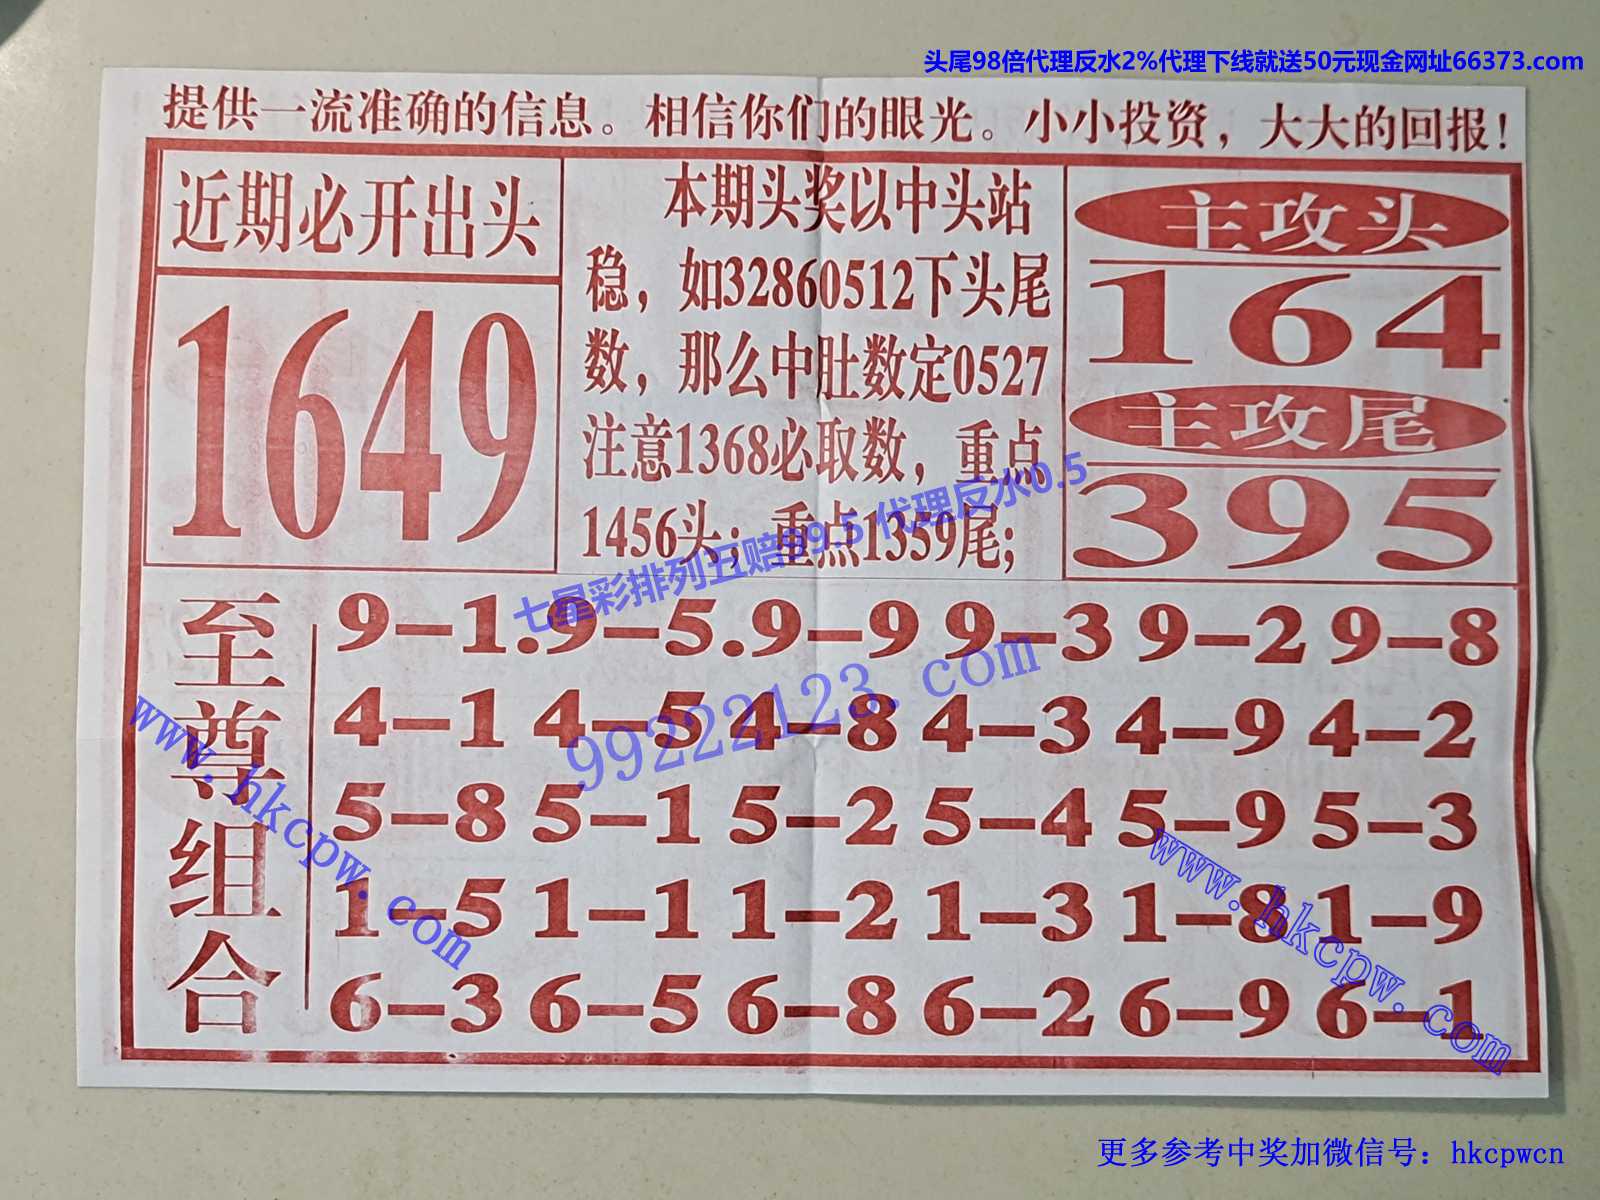 头尾98倍代理反水2%代理下线就送50元现金网址66373.com
提供一流准确的信息。相信你们的眼光。小小投资，大大的回报！
近期必开出头
1649
本期头奖以中头站
稳，如32860512下头尾
数，那么中肚数定0527
注意1368必取数，重点
1456头；重点1359尾;
主攻头
164
主攻尾
395
七星彩排列五赔99.5 代理反水0.5
至尊组合
9-1.9-5.9-9 9-3 9-2 9-8
4-1 4-5 4-8 4-3 4-9 4-2
5-8 5-1 5-2 5-4 5-9 5-3
1-5 1-1 1-2 1-3 1-8 1-9
6-3 6-5 6-8 6-2 6-9 6-1
99222123.com
www.hkcpw.com
www.hkcpw.com
更多参考中奖加微信号：hkcpwcn